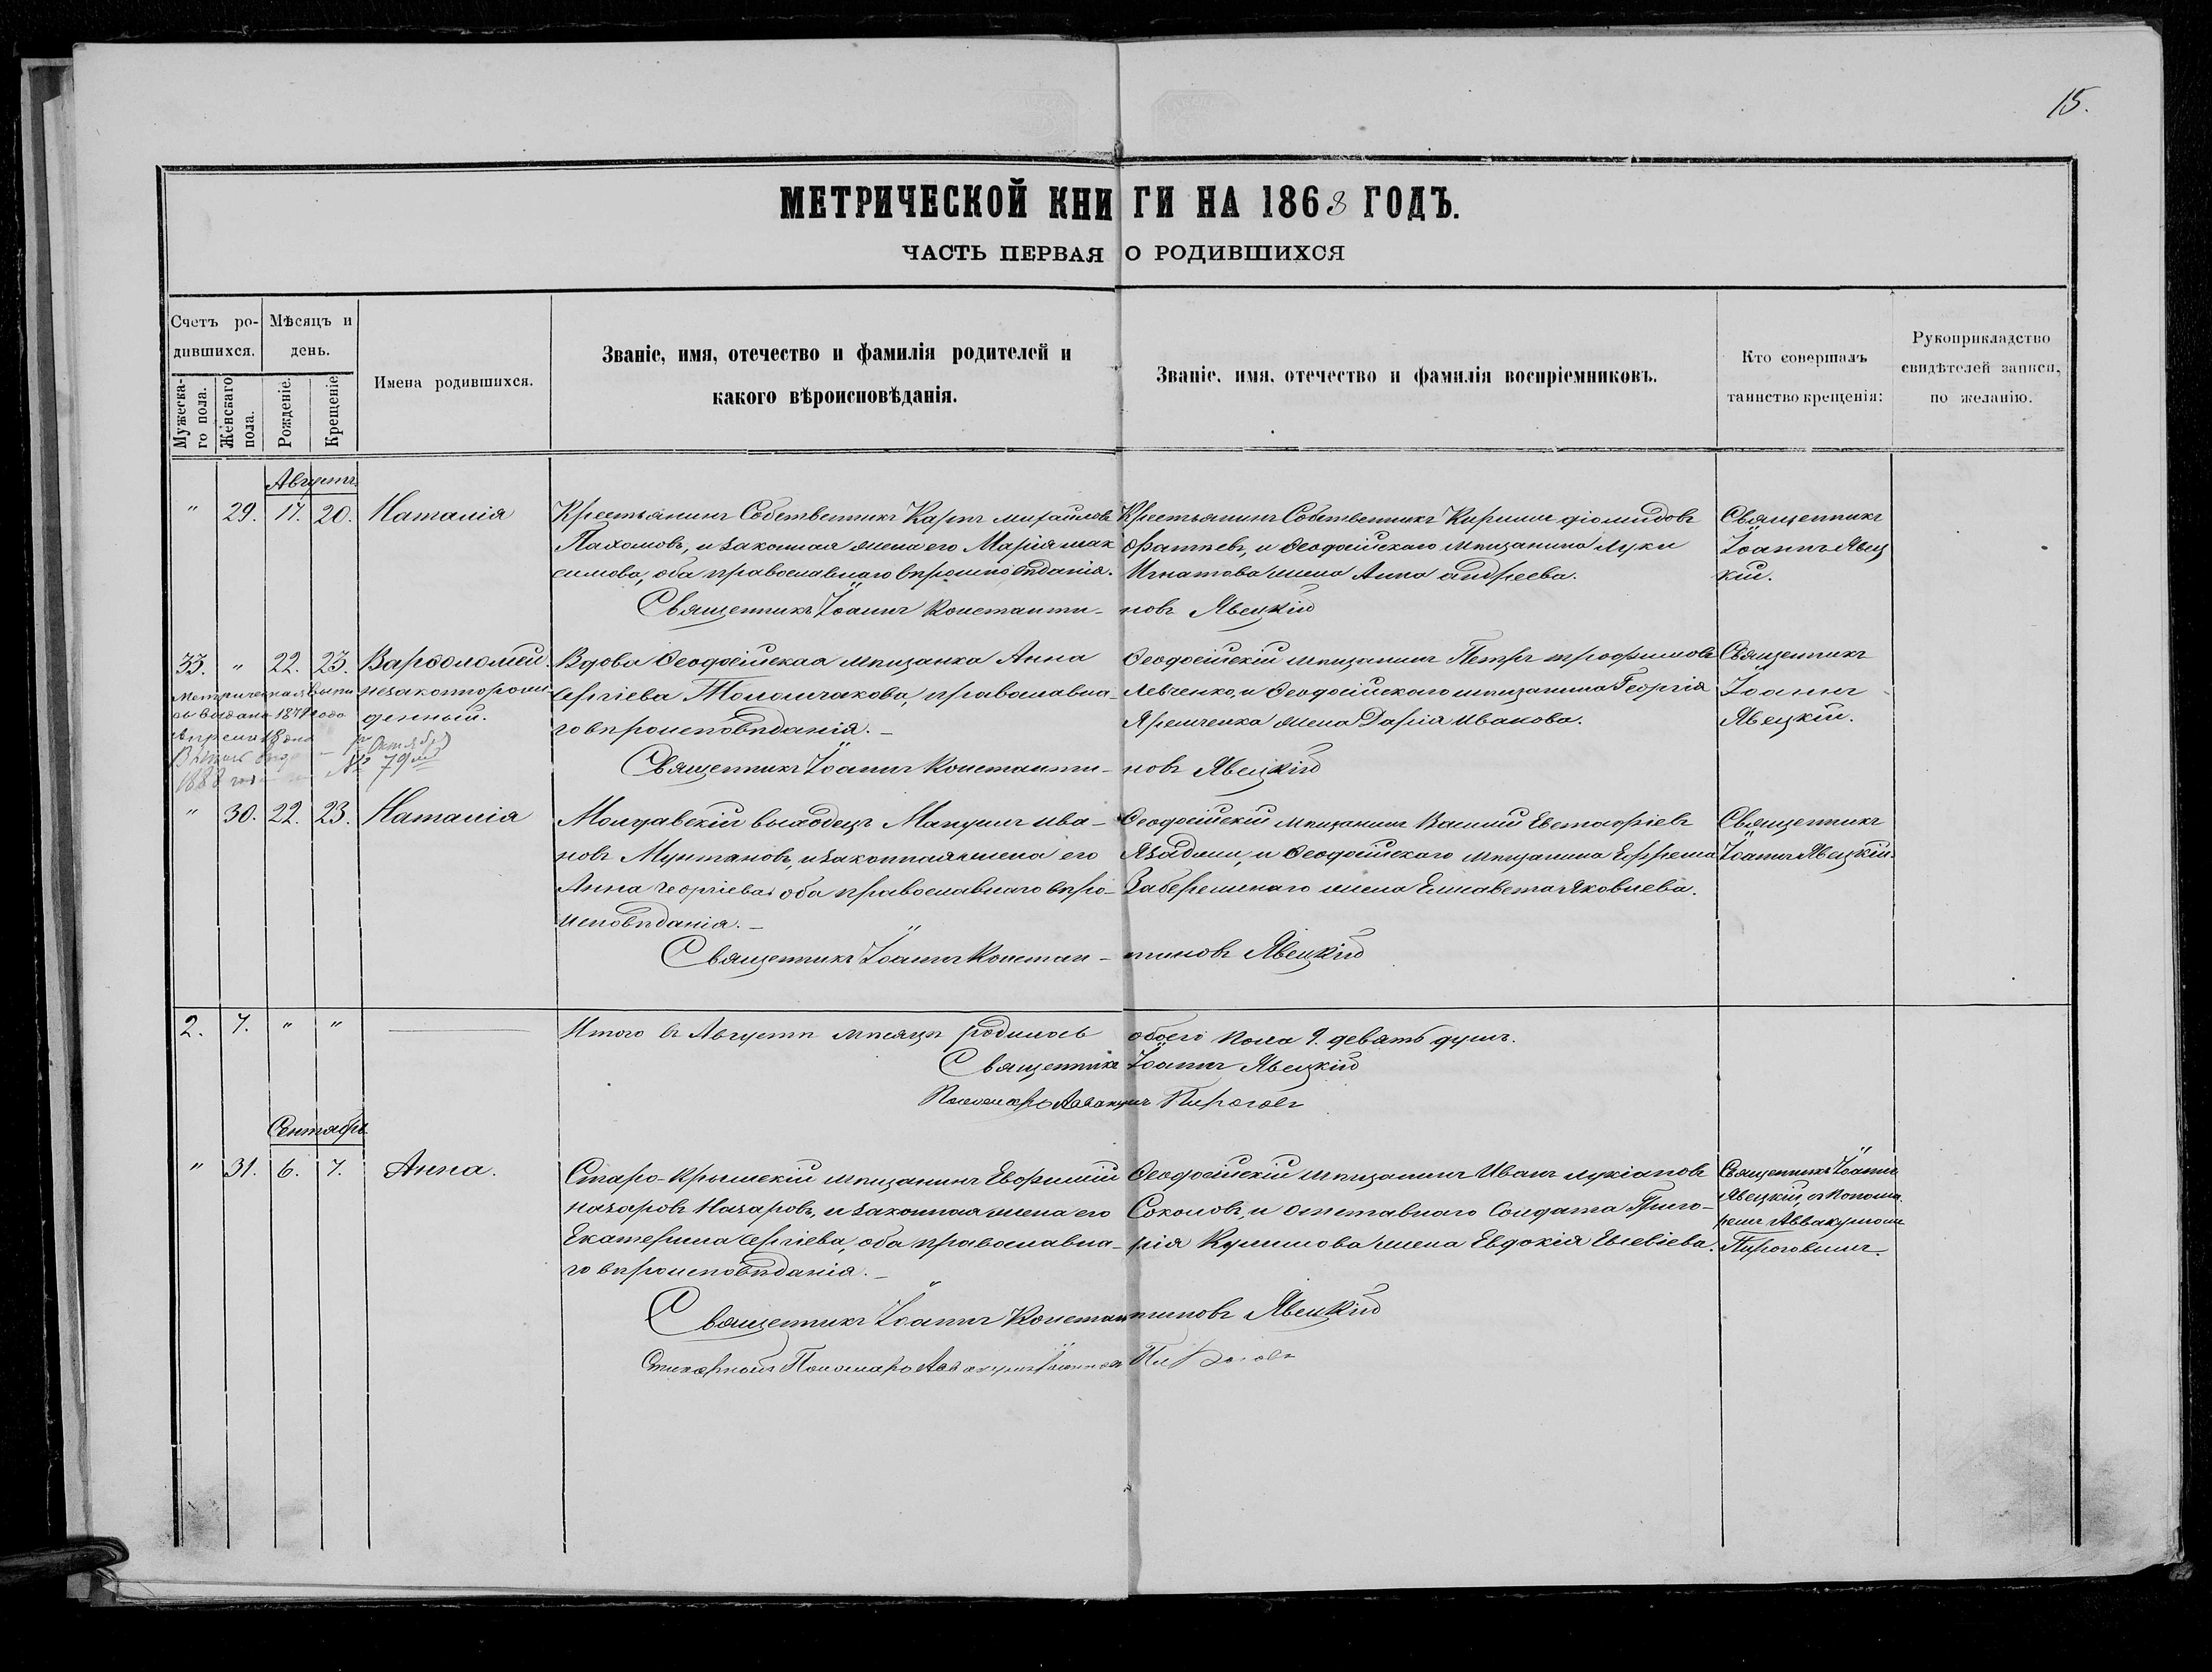 15.
МЕТРИЧЕСКОЙ КНИГИ НА 1868 ГОДЪ.
ЧАСТЬ ПЕРВАЯ О РОДИВШИХСЯ
Счетъ родившихся.
Мужескаго пола.
Женскаго пола.
Мѣсяцъ и день.
Рожденіе.
Крещеніе.
Имена родившихся.
Званіе, имя, отечество и фамилія родителей и
какого вѣроисповѣданія.
Званіе, имя, отечество и фамилія воспріемниковъ.
Кто совершалъ
таинство крещенія:
Рукоприкладство
свидѣтелей записи,
по желанію.
Августъ
" 29. 17. 20. Наталія
Крестьянинъ Собственникъ Карпъ михайловъ
Пахомовъ, и законная жена его Марія мак
симова, оба православнаго вѣроисповѣданія.
Крестьянинъ Собственникъ Кириллъ діомидовъ
и Ѳеодосійскаго мѣщанина Луки
Игнатова жена Анна андреева.
Священникъ
Іоаннъ Явец
кій.
Священникъ Іоаннъ Константиновъ Явецкій
33. " 22. 23. Варѳоломей
незаконнорож
денный.
Метрическая выпи
сь выдана 1878 года
Апреля 18 дня
1888
Октября
№ 79
Вдова Ѳеодосійская мѣщанка Анна
Сергіева Толмачакова, православна-
го вѣроисповѣданія.
Ѳеодосійскій мѣщанинъ Петръ трофимовъ
Левченко, и Ѳеодосійскаго мѣщанина Георгія
Яремченка жена Дарія иванова.
Священникъ
Іоаннъ
Явецкій.
Священникъ Іоаннъ Константиновъ Явецкій
" 30. 22. 23. Наталія
Молдавскій выходецъ Мануилъ ива-
новъ Мунтяновъ, и законная жена его
Анна георгіева оба православнаго вѣро-
исповѣданія.
Ѳеодосійскій мѣщанинъ Василій Евстафіевъ
и Ѳеодосійскаго мѣщанина Ефрема
жена Елисавета Яковлева.
Священникъ
Іоаннъ Явецкій.
Священникъ Іоаннъ Константиновъ Явецкій
2. 7. " "
Итого въ Августѣ мѣсяцѣ родилось обоего пола 9. девять душъ.
Священникъ Іоаннъ Явецкій
Пономарь Аввакумъ Пироговъ
Сентябрь
" 31. 6. 7. Анна.
Старо-Крымскій мѣщанинъ Евфимій
назаровъ Назаровъ, и законная жена его
Екатерина Сергіева, оба православна-
го вѣроисповѣданія.
Ѳеодосійскій мѣщанинъ Иванъ лукіановъ
Соколовъ, и отставнаго Солдата Григо-
рія Куликова жена Евдокія Евсевіева.
Священникъ Іоаннъ
Явецкій, съ понома
ремъ Аввакумомъ
Пироговымъ.
Священникъ Іоаннъ Константиновъ Явецкій
Стихарный Пономарь Аввакумъ Іоанновъ Пироговъ